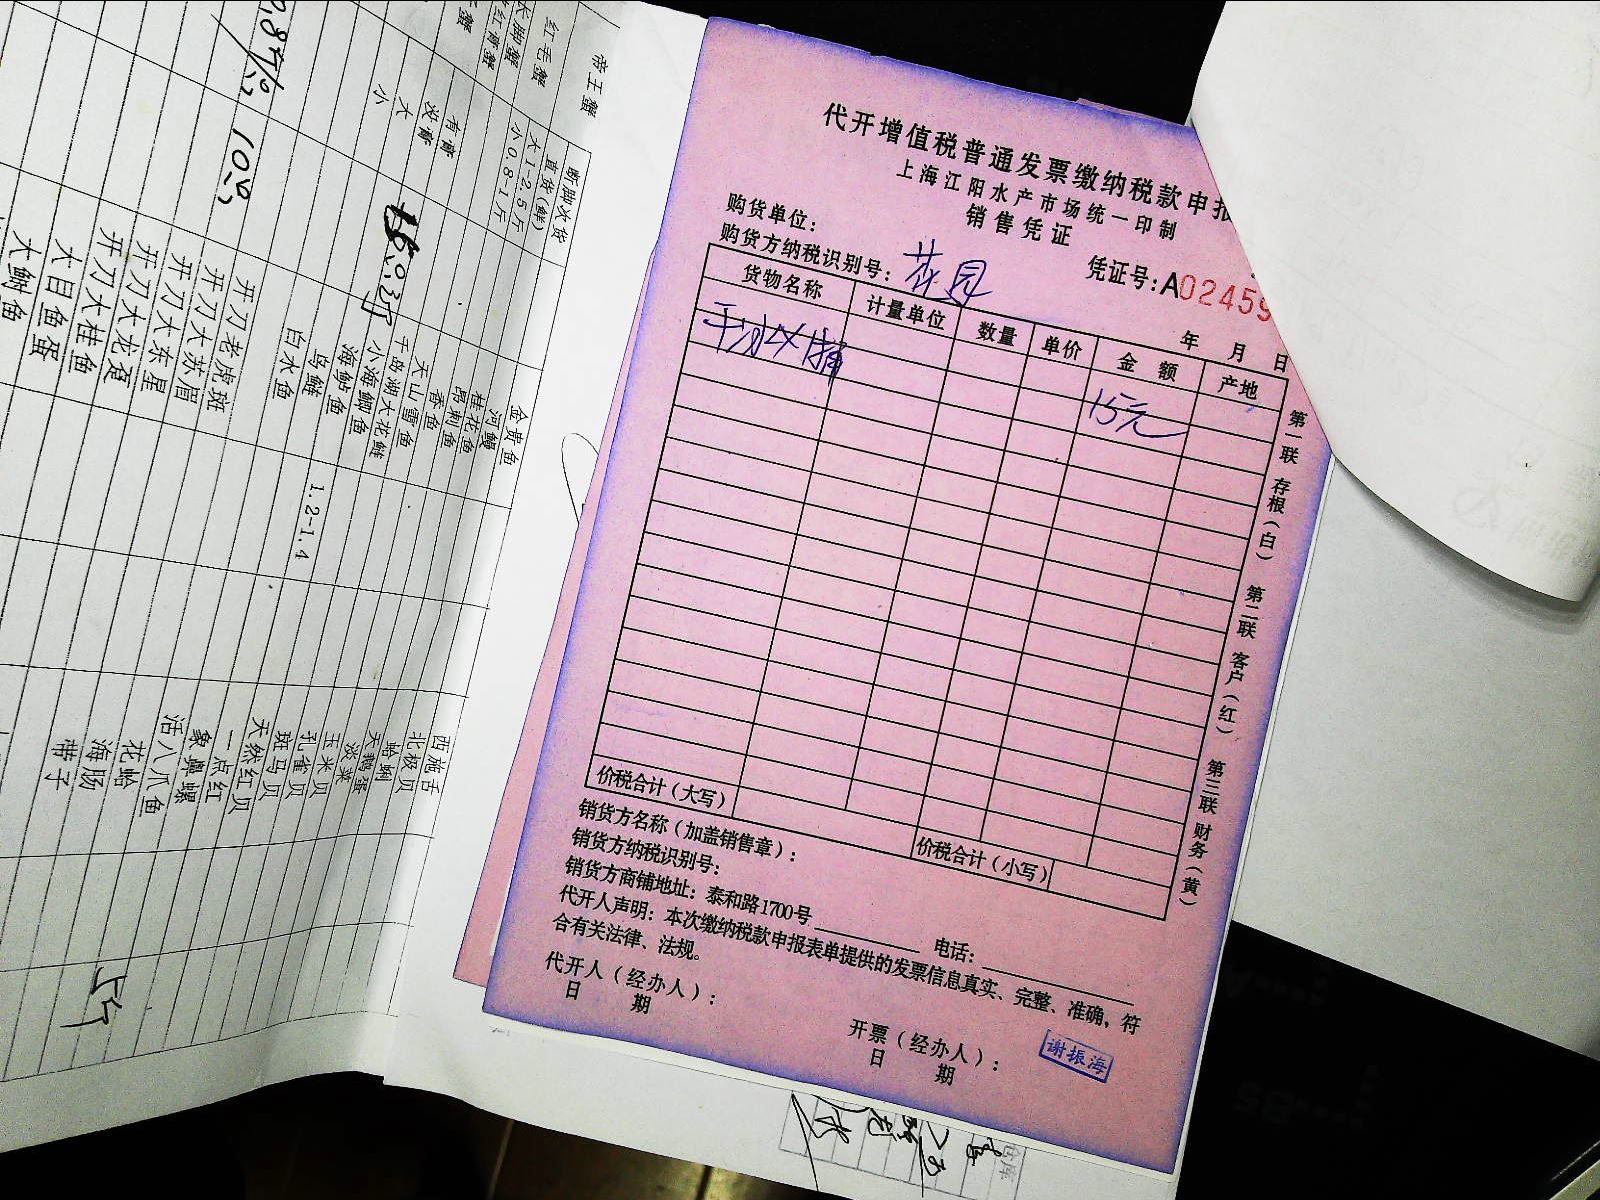 代开增值税普通发票缴纳税款申报
上海江阳水产市场统一印制
销售凭证
购货单位：
购货方纳税识别号：
花园
凭证号：A02459
年 月 日
货物名称 计量单位 数量 单价 金额 产地
15元
价税合计（大写）
价税合计（小写）
销货方名称（加盖销售章）：
销货方纳税识别号：
销货方商铺地址：泰和路1700号 电话：
代开人声明：本次缴纳税款申报表单提供的发票信息真实、完整、准确，符
合有关法律、法规。
代开人（经办人）：
日 期
开票（经办人）：
日 期
谢振海
第一联 存根（白） 第二联 客户（红） 第三联 财务（黄）
帝王蟹
断脚次货
红毛蟹
大1-2.5斤
直货(鲜)
小0.8-1斤
长脚蟹
红膏蟹
有膏
没膏
大
小
金贵鱼
河鳗
桂花鱼
昂刺鱼
香鱼
天山雪鱼
千岛湖大花鲢
小海鲫鱼
海鲇鱼
乌鲢
白水鱼
1.2-1.4
开刀老虎斑
开刀大苏眉
开刀大东星
开刀大龙趸
开刀大桂鱼
大目鱼蛋
大鮰鱼
西施舌
北极贝
蛤蜊
天鹅蛋
淡菜
玉米贝
孔雀贝
斑马贝
天然红贝
一点红
象鼻螺
活八爪鱼
花蛤
海肠
带子